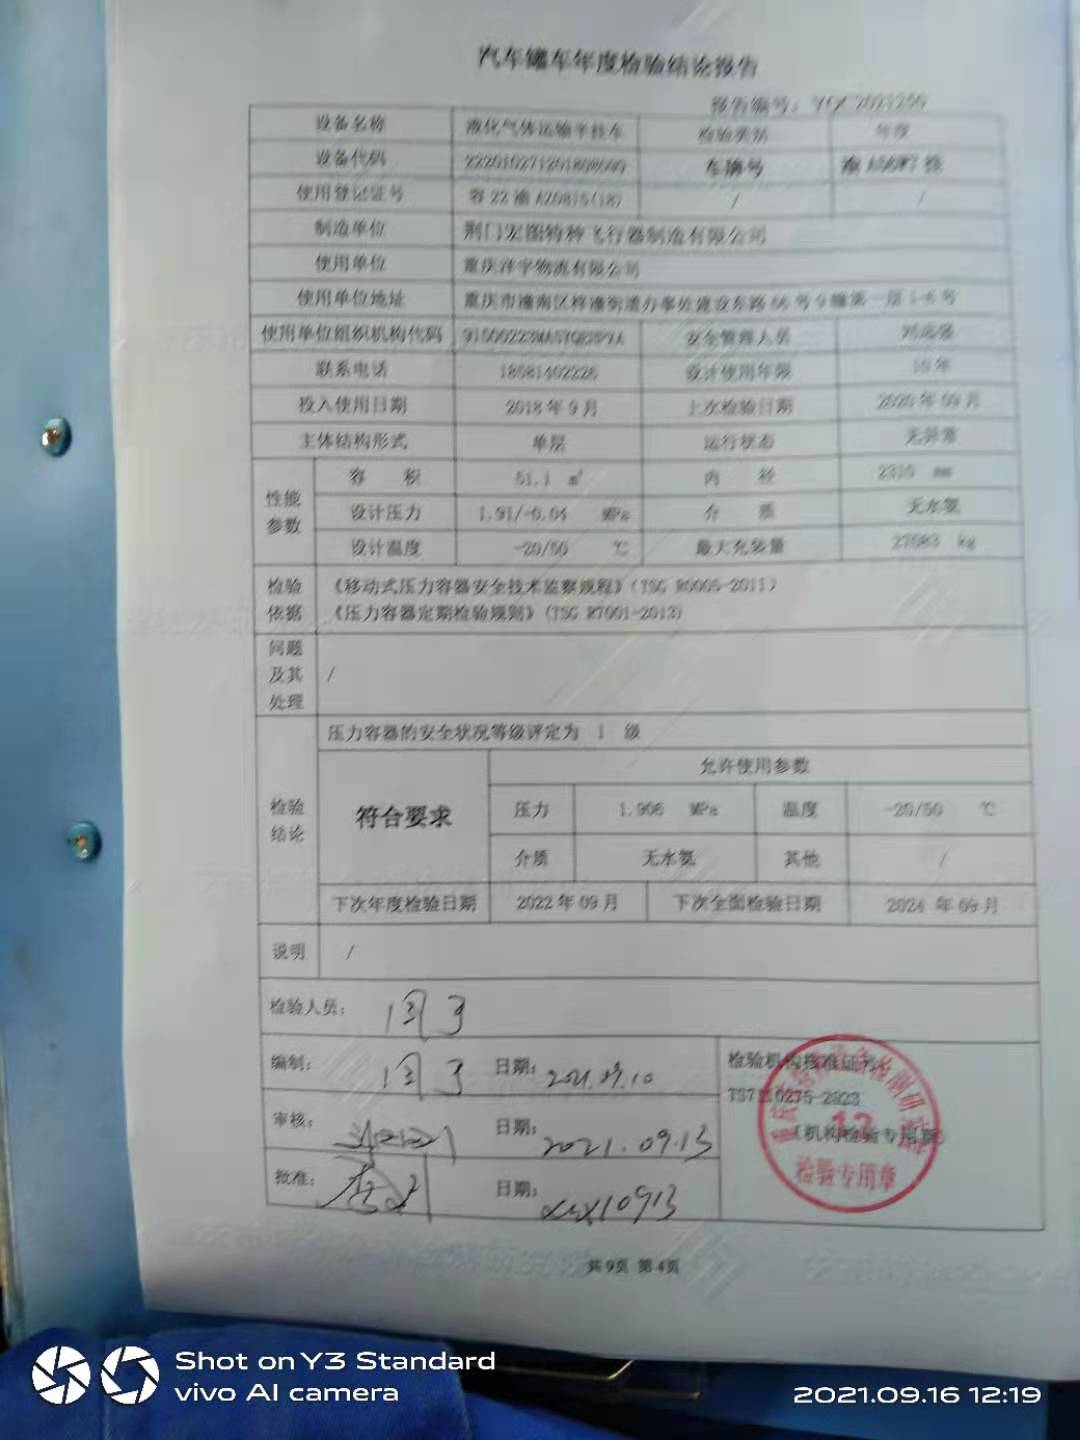 汽车罐车年度检验结论报告
报告编号：
设备名称 液化气体运输半挂车 检验类别 年度
设备代码 车牌号
使用登记证号 / /
制造单位 荆门宏图特种飞行器制造有限公司
使用单位 重庆洋宇物流有限公司
使用单位地址 重庆市潼南区梓潼街道办事处建设东路 号 幢第一层1-6号
使用单位组织机构代码 安全管理人员
联系电话 18581402226 设计使用年限
投入使用日期 2018年9月 上次检验日期 2020年09月
主体结构形式 单层 运行状态 无异常
性能参数
容 积 51.1 m³ 内 径 2310 mm
设计压力 1.91/-0.04 MPa 介 质 无水氨
设计温度 -20/50 ℃ 最大充装量 kg
检验依据
《移动式压力容器安全技术监察规程》（TSG R0005-2011）
《压力容器定期检验规则》（TSG R7001-2013）
问题及其处理 /
检验结论
压力容器的安全状况等级评定为 1 级
符合要求
允许使用参数
压力 1.906 MPa 温度 -20/50 ℃
介质 无水氨 其他 /
下次年度检验日期 2022年09月 下次全面检验日期 2024年09月
说明 /
检验人员：
编制： 日期： 2021.09.10
检验机构核准证号：
审核： 日期： 2021.09.13
（机构检验专用章）
检验专用章
批准： 日期：
共9页 第4页
Shot on Y3 Standard
vivo AI camera
2021.09.16 12:19